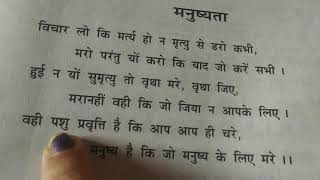 मनुष्यता
विचार लो कि मर्त्य हो न मृत्यु से डरो कभी,
मरो परंतु यों करो कि याद जो करें सभी।
हुई न यों सुमृत्यु तो वृथा मरे, वृथा जिए,
मरानहीं वही कि जो जिया न आपके लिए।
वही पशु प्रवृत्ति है कि आप आप ही चरे,
मनुष्य है कि जो मनुष्य के लिए मरे ।।